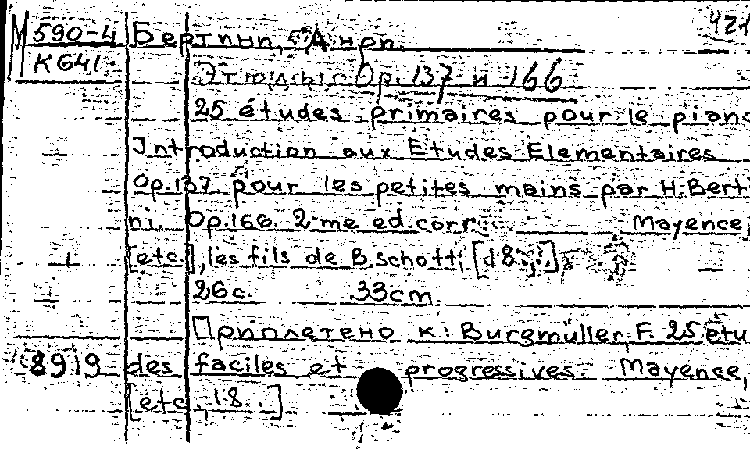 М 590-4 Бертини, Анри.
К641 Этюды. Op. 137 и 166
25 études primaires pour le piano
Introduction aux Etudes Elementaires
Op.137 pour les petites mains par H. Berti
ni. Op.166. 2-me ed corr. Mayence,
[etc.], les fils de B. Schott [18..].
26c. 33cm.
Приплетено к: Burgmüller, F. 25 etu
8919 des faciles et progressives. Mayence,
[etc., 18..]